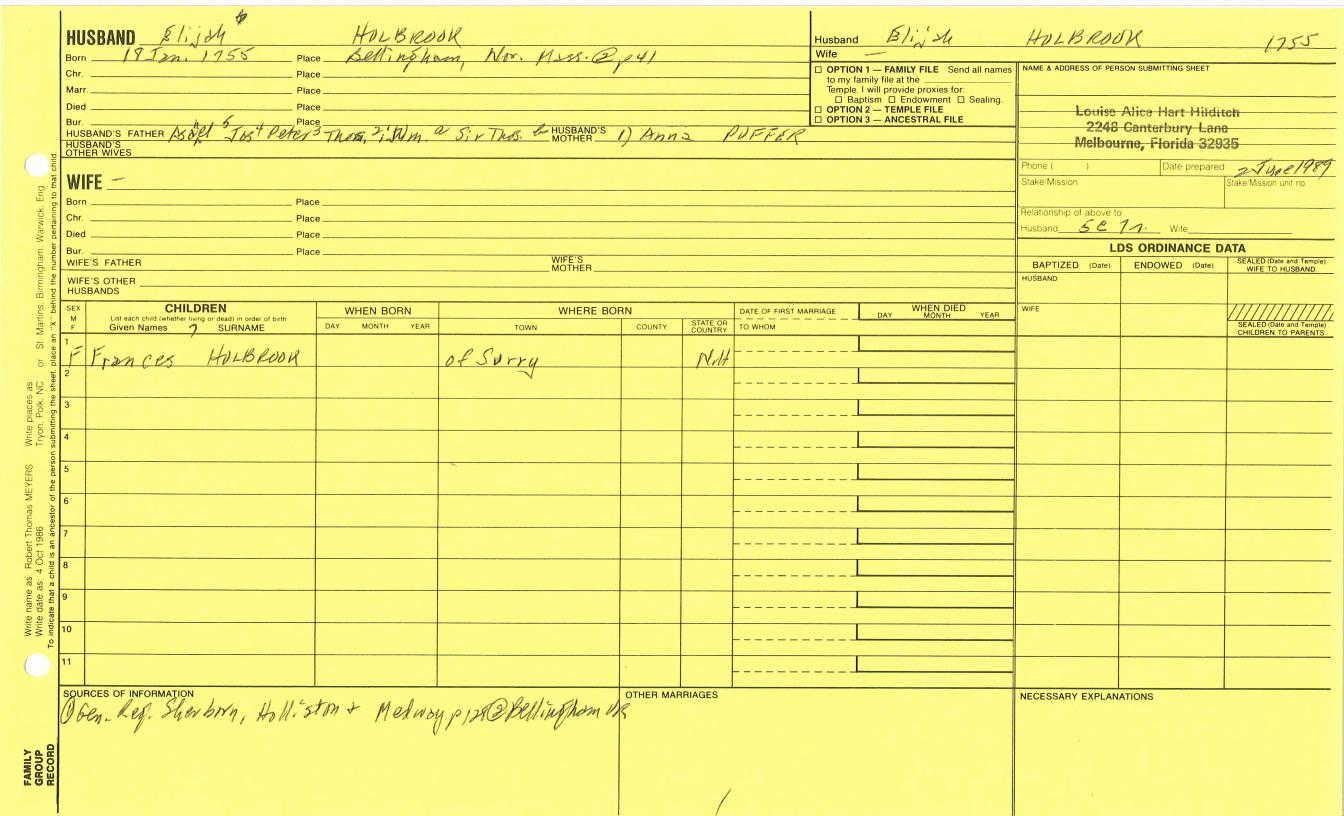 HUSBAND Elijah 6 HOLBROOK
Born 18 Jan. 1755 Place Bellingham, Nor. Mass. ② p41
Chr. Place
Marr. Place
Died Place
Bur. Place
HUSBAND'S FATHER Asahel 5 Jos 4 Peter 3 Thom. 2 Wm. a Sir Thos. b HUSBAND'S MOTHER 1) Anna PUFFER
HUSBAND'S OTHER WIVES
Husband Elijah HOLBROOK 1755
Wife —
☐ OPTION 1 — FAMILY FILE Send all names
to my family file at the
Temple. I will provide proxies for:
☐ Baptism ☐ Endowment ☐ Sealing.
☐ OPTION 2 — TEMPLE FILE
☐ OPTION 3 — ANCESTRAL FILE
NAME & ADDRESS OF PERSON SUBMITTING SHEET
Louise Alice Hart Hilditch
2248 Canterbury Lane
Melbourne, Florida 32935
Phone ( ) Date prepared 2 June 1989
Stake/Mission Stake/Mission unit no.
Relationship of above to
Husband 5c 7r. Wife
WIFE —
Born Place
Chr. Place
Died Place
Bur. Place
WIFE'S FATHER WIFE'S MOTHER
WIFE'S OTHER HUSBANDS
LDS ORDINANCE DATA
BAPTIZED (Date) ENDOWED (Date) SEALED (Date and Temple) WIFE TO HUSBAND
HUSBAND
WIFE
SEALED (Date and Temple) CHILDREN TO PARENTS
SEX M F
CHILDREN
List each child (whether living or dead) in order of birth
Given Names 7 SURNAME
WHEN BORN
DAY MONTH YEAR
WHERE BORN
TOWN COUNTY STATE OR COUNTRY
DATE OF FIRST MARRIAGE
TO WHOM
WHEN DIED
DAY MONTH YEAR
1 F Frances HOLBROOK of Surry N.H
2
3
4
5
6
7
8
9
10
11
SOURCES OF INFORMATION
① Gen. Reg. Sherborn, Holliston & Medway p 125 ② Bellingham VR
OTHER MARRIAGES
NECESSARY EXPLANATIONS
Write name as: Robert Thomas MEYERS Write places as: Tryon, Polk, NC or St. Martins, Birmingham, Warwick, Eng.
Write date as: 4 Oct 1986
To indicate that a child is an ancestor of the person submitting the sheet, place an "X" behind the number pertaining to that child.
FAMILY
GROUP
RECORD